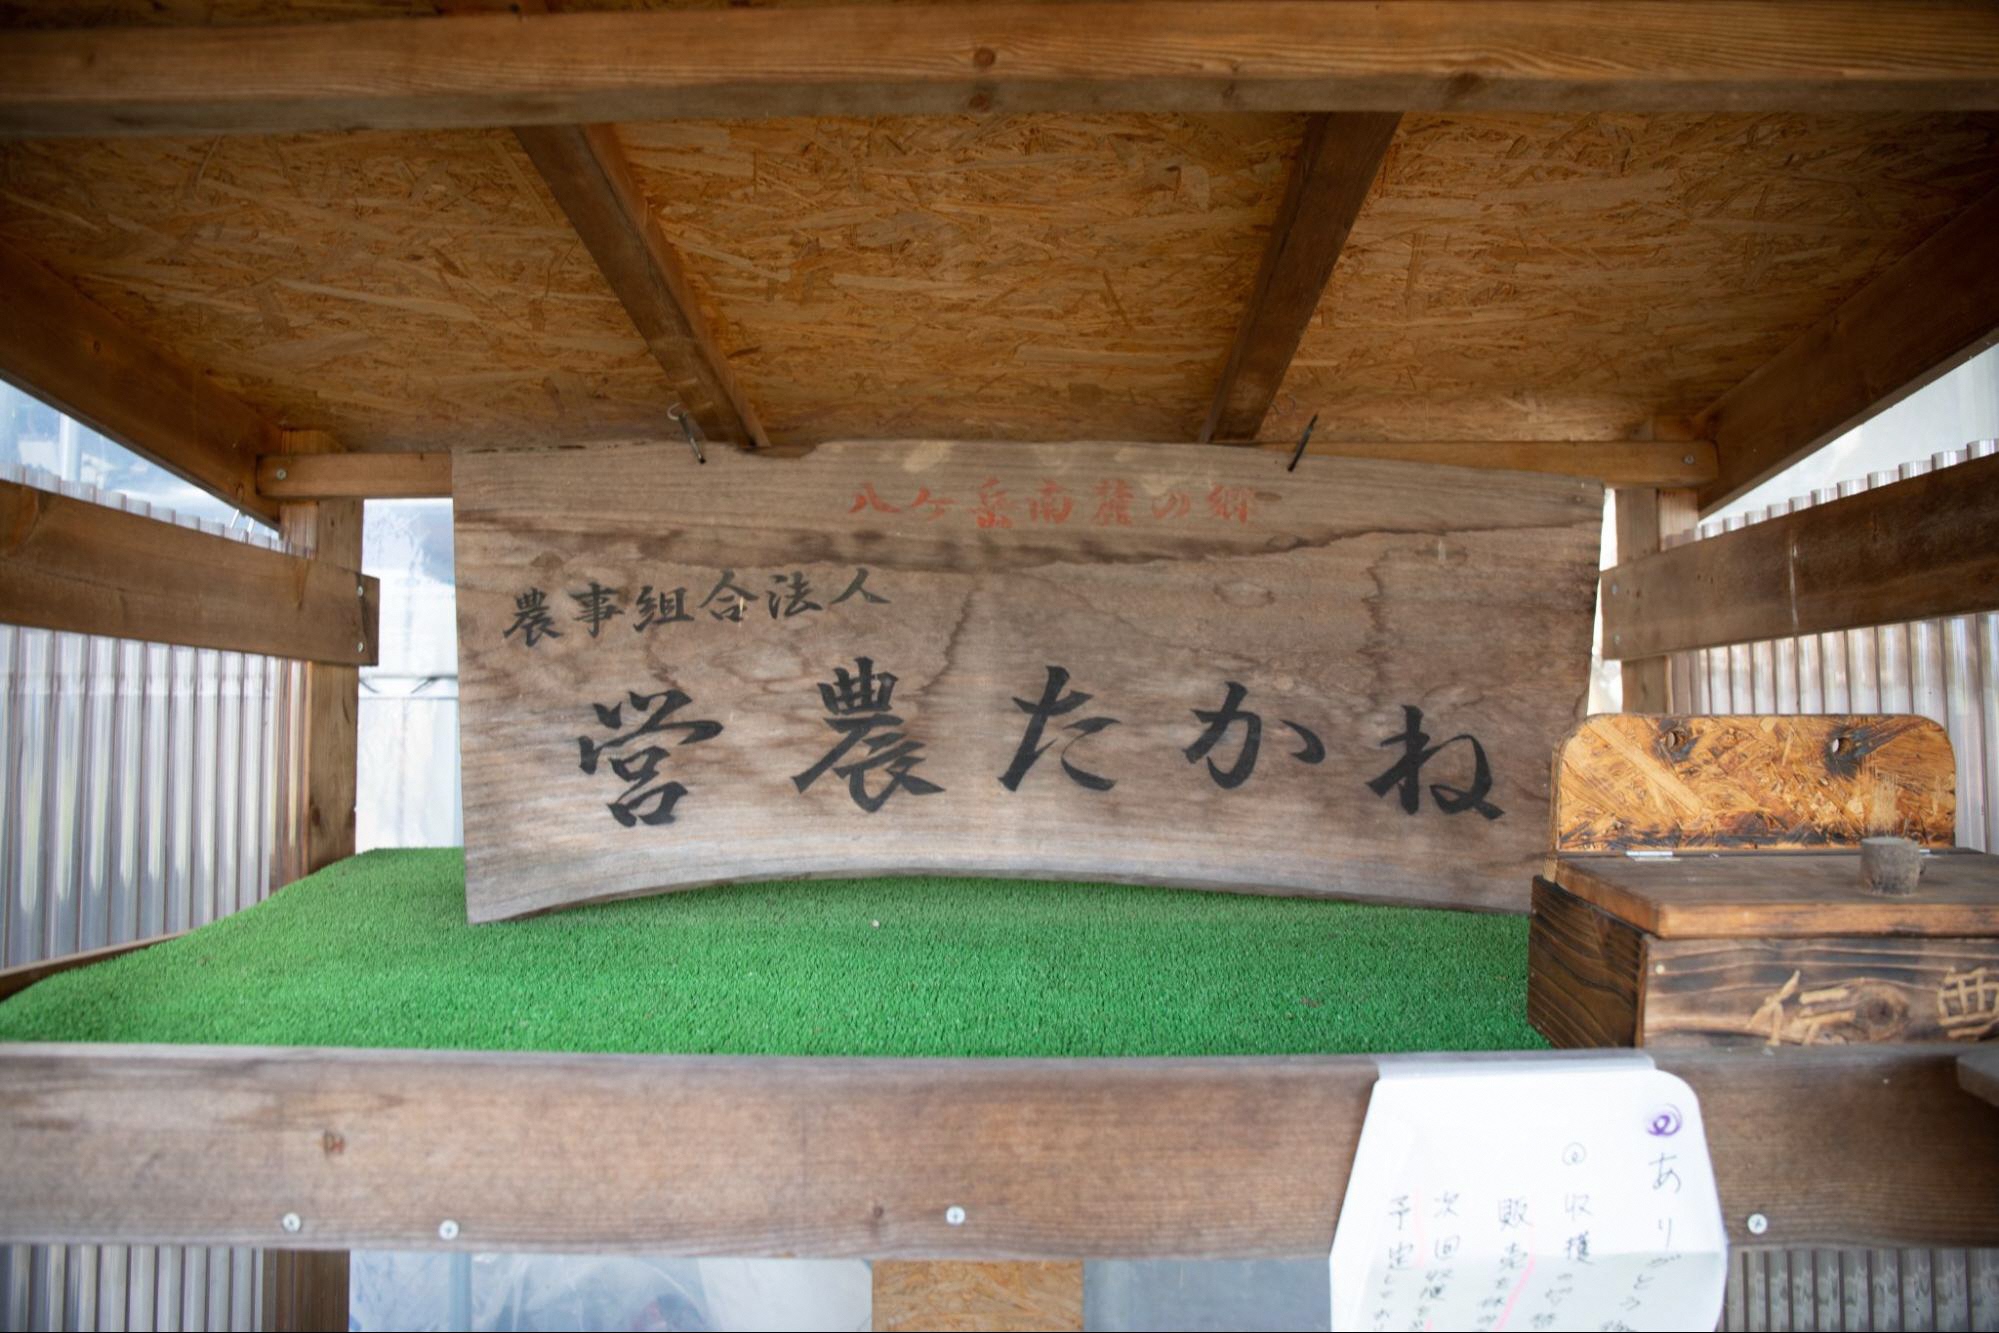 八ヶ岳南麓の郷
農事組合法人
営農たかね
ありがとう
収穫の
販売を
次回収穫を
予定して